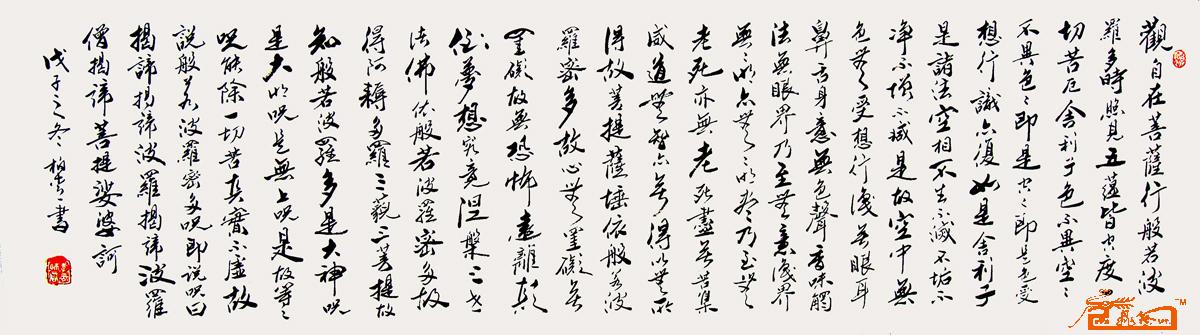 觀自在菩薩行般若波
羅多時照見五蘊皆空度一
切苦厄舍利子色不異空空
不異色色即是空空即是色受
想行識亦復如是舍利子
是諸法空相不生不滅不垢不
淨不增不減是故空中無
色無受想行識無眼耳
鼻舌身意無色聲香味觸
法無眼界乃至無意識界
無無明亦無無明盡乃至無
老死亦無老死盡無苦集
滅道無智亦無得以無所
得故菩提薩埵依般若波
羅密多故心無罣礙無
罣礙故無恐怖遠離顛
倒夢想究竟涅槃三世
諸佛依般若波羅密多故
得阿耨多羅三藐三菩提故
知般若波羅多是大神咒
是大明咒是無上咒是故等等
咒能除一切苦真實不虛故
說般若波羅密多咒即說咒曰
揭諦揭諦波羅揭諦波羅
僧揭諦菩提娑婆訶
戊子之冬 柏雪書
TM